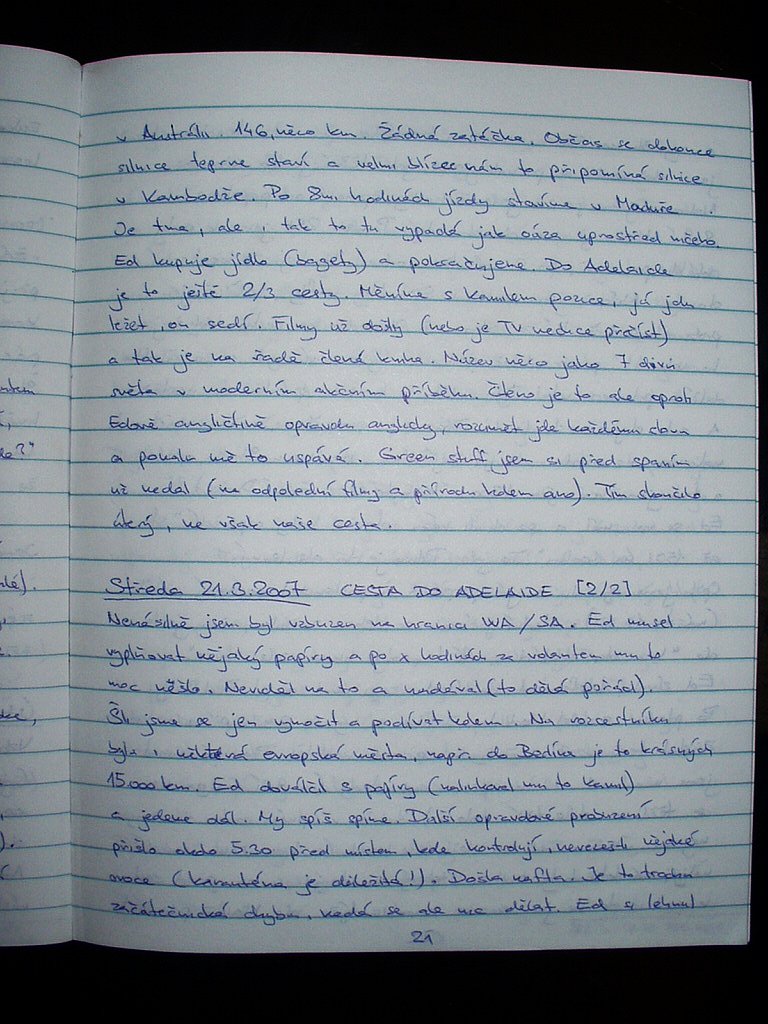 v Austrálii. 146,něco km. Žádná zatáčka. Občas se dokonce
silnice teprve staví a velmi blízce nám to připomíná silnice
v Kambodže. Po 8mi hodinách jízdy stavíme v Maduře.
Je tma, ale i tak to tu vypadá jak oáza uprostřed ničeho.
Ed kupuje jídlo (bagety) a pokračujeme. Do Adelaide
je to ještě 2/3 cesty. Měníme s Kamilem pozice, já jdu
ležet, on sedí. Filmy už došly (nebo je TV nechce přečíst)
a tak je na řadě čtená kniha. Název něco jako 7 divů
světa v moderním akčním příběhu. Čteno je to ale oproti
Edově angličtině opravdu anglicky, rozumět jde každému slovu
a pomalu mě to uspává. Green stuff jsem si před spaním
už nedal (na odpolední filmy a přírodu kolem ano). Tím skončilo
úterý, ne však naše cesta.
Středa 21.3.2007 CESTA DO ADELAIDE [2/2]
Nenásilně jsem byl vzbuzen na hranici WA/SA. Ed musel
vyplňovat nějaký papíry a po x hodinách za volantem mu to
moc nešlo. Neviděl na to a nadával (to dělá pořád).
Šli jsme se jen vymočit a podívat kolem. Na rozcestníku
byla i některá evropská města, např. do Berlína je to krásných
15.000 km. Ed doválčil s papíry (nalinkoval mu to Kamil)
a jedeme dál. My spíš spíme. Další opravdové probuzení
přišlo okolo 5.30 před místem, kde kontrolují, nevezeš-li nějaké
ovoce (karanténa je důležitá!). Došla nafta. Je to trochu
začátečnická chyba, nedá se ale nic dělat. Ed si lehnul
21
ntem
do?"